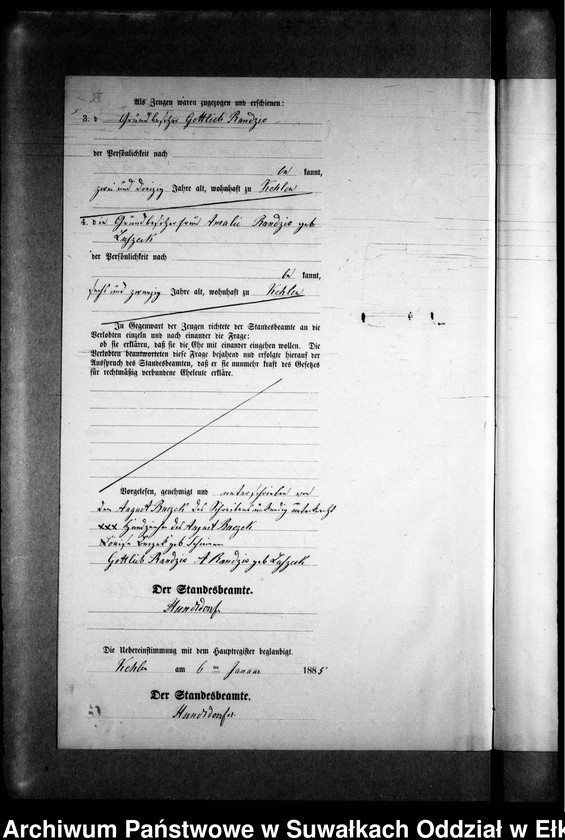 Als Zeugen waren zugezogen und erschienen:
3. d Grundbesitzer Gottlieb Randzio
der Persönlichkeit nach
be kannt,
zwei und dreizig Jahre alt, wohnhaft zu Kehlen
4. die Grundbesitzerfrau Amalie Randzio geb
der Persönlichkeit nach
be kannt,
sechs und zwanzig Jahre alt, wohnhaft zu Kehlen
In Gegenwart der Zeugen richtete der Standesbeamte an die
Verlobten einzeln und nach einander die Frage:
ob sie erklären, daß sie die Ehe mit einander eingehen wollen. Die
Verlobten beantworteten diese Frage bejahend und erfolgte hierauf der
Ausspruch des Standesbeamten, daß er sie nunmehr kraft des Gesetzes
für rechtmäßig verbundene Eheleute erkläre.
Vorgelesen, genehmigt und unterschrieben von
dem August des Schreibens unkundig unterkreuzt
xxx Handzeichen des August
geb
Gottlieb Randzio A Randzio geb
Der Standesbeamte.
Die Uebereinstimmung mit dem Hauptregister beglaubigt.
Kehlen am 6 ten Januar 1885
Der Standesbeamte.
Archiwum Państwowe w Suwałkach Oddział w Ełk